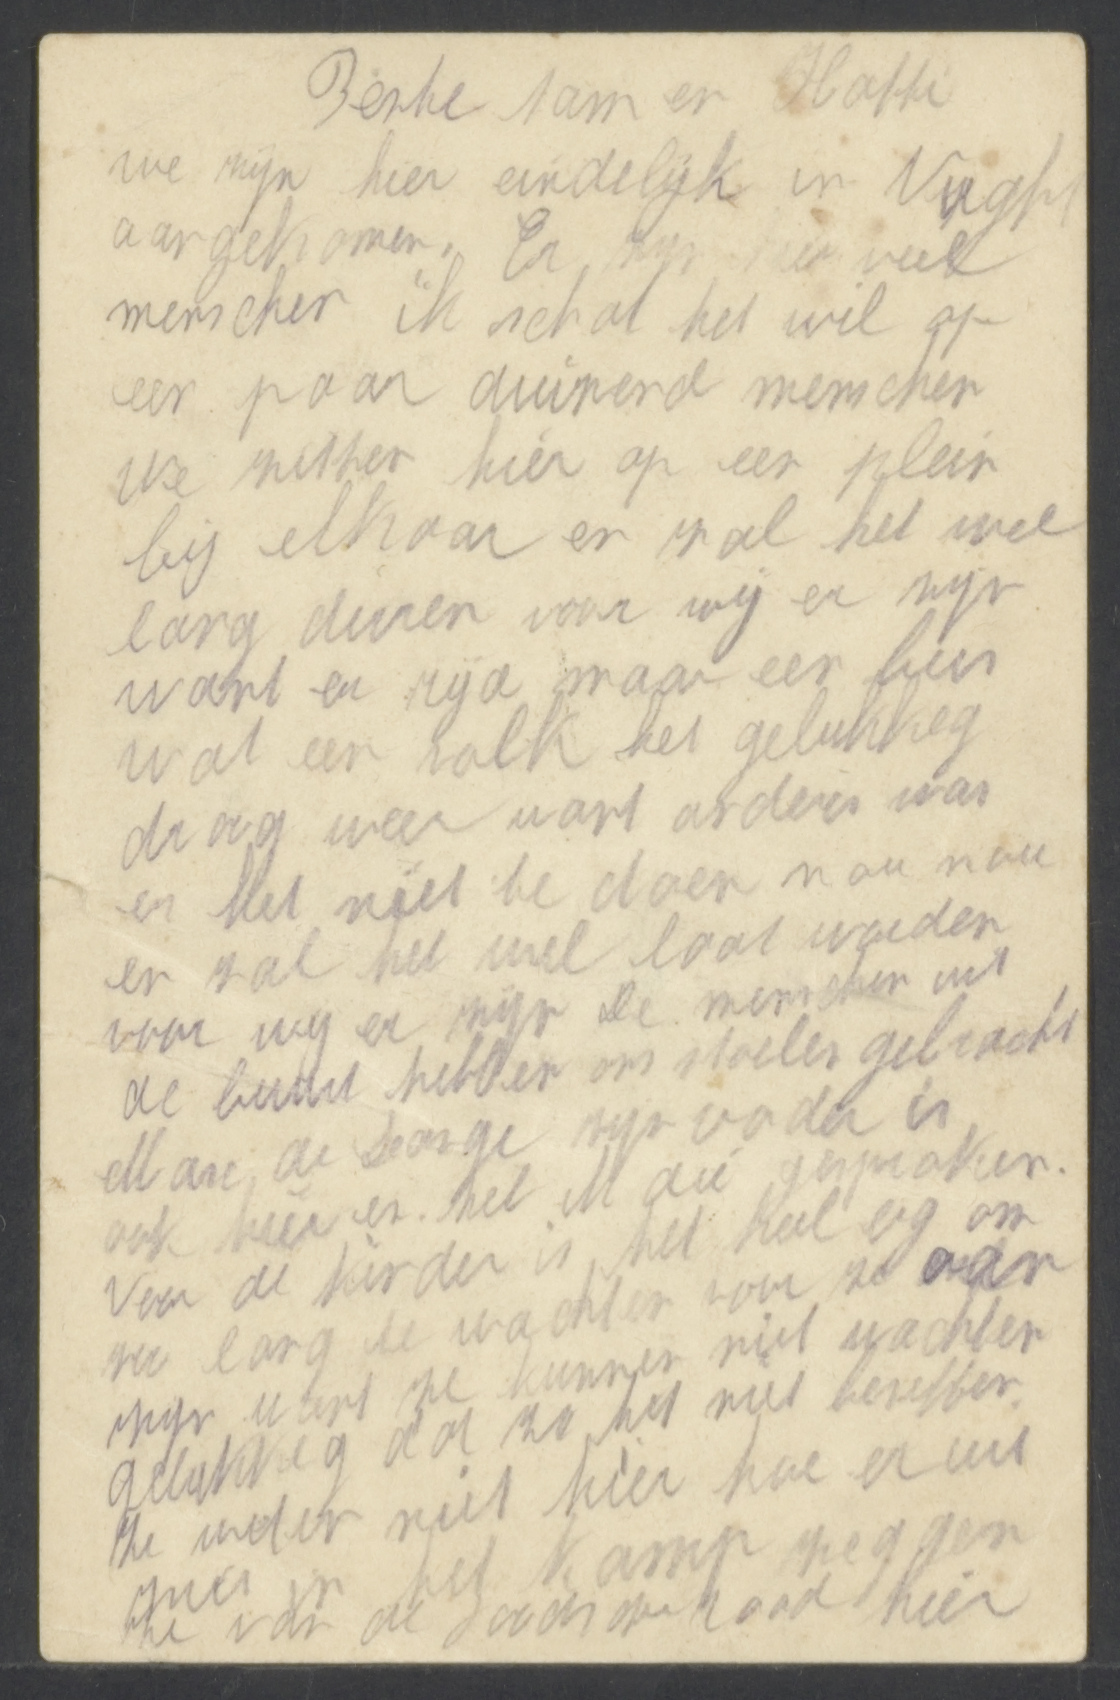 Beste Sam en
we zijn hier eindelijk in Vught
aangekomen. Er zijn hier veel
menschen ik schat het wel op
een paar duizend menschen
We zitten hier op een plein
bij elkaar en zal het wel
lang duren voor wij er zijn
want er rijd maar een bus
wat een volk het gelukkeg
droog weer want anders was
er het niet te doen nou nou
en zal het wel laat worden
voor wij er zijn De menschen uit
de buurt hebben ons stoelen gebracht
de zijn vader is
ook hier en het gesproken.
Voor de kinder is het heel erg om
zoo lang te wachten voor ze aan
zijn want ze kunnen niet wachten
gelukkeg dat ze het niet beseffen.
Ze weten niet hier hoe er uit
ziet in het kamp zeggen
ze van de raad hier